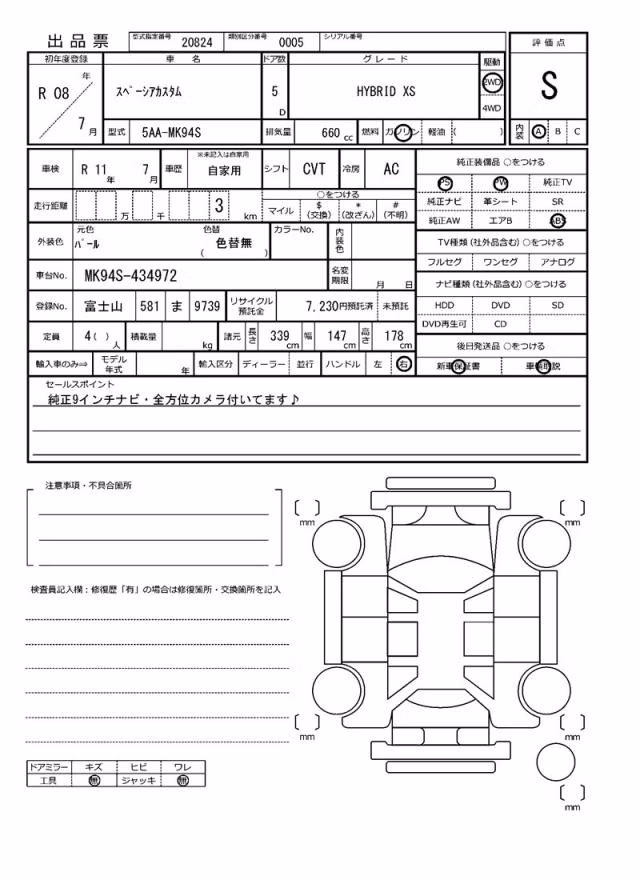 出品票 型式指定番号 20824 類別区分番号 0005 シリアル番号
評価点
S
内装 A B C
初年度登録 車名 ドア数 グレード 駆動
R 08 年 7 月 スペーシアカスタム 5 D HYBRID XS 2WD 4WD
型式 5AA-MK94S 排気量 660 cc 燃料 ガソリン 軽油 ( )
車検 R 11 年 7 月 車歴 ※未記入は自家用 自家用 シフト CVT 冷房 AC
走行距離 万 千 3 km ○をつける
マイル $ (交換) * (改ざん) # (不明)
外装色 元色 パール 色替 ( 色替無 ) カラーNo. 内装色
車台No. MK94S-434972 名変期限 月 日
登録No. 富士山 581 ま 9739 リサイクル預託金 7,230円預託済 未預託
定員 4( ) 人 積載量 kg 諸元 長さ 339 cm 幅 147 cm 高さ 178 cm
輸入車のみ⇨ モデル年式 年 輸入区分 ディーラー 並行 ハンドル 左 右
純正装備品 ○をつける
PS PW 純正TV
純正ナビ 革シート SR
純正AW エアB ABS
TV種類 (社外品含む) ○をつける
フルセグ ワンセグ アナログ
ナビ種類 (社外品含む) ○をつける
HDD DVD SD
DVD再生可 CD
後日発送品 ○をつける
新車保証書 車輌取説
セールスポイント
純正9インチナビ・全方位カメラ付いてます♪
注意事項・不具合箇所
検査員記入欄：修復歴「有」の場合は修復箇所・交換箇所を記入
mm
mm
mm
mm
mm
ドアミラー キズ ヒビ ワレ
工具 無 ジャッキ 無